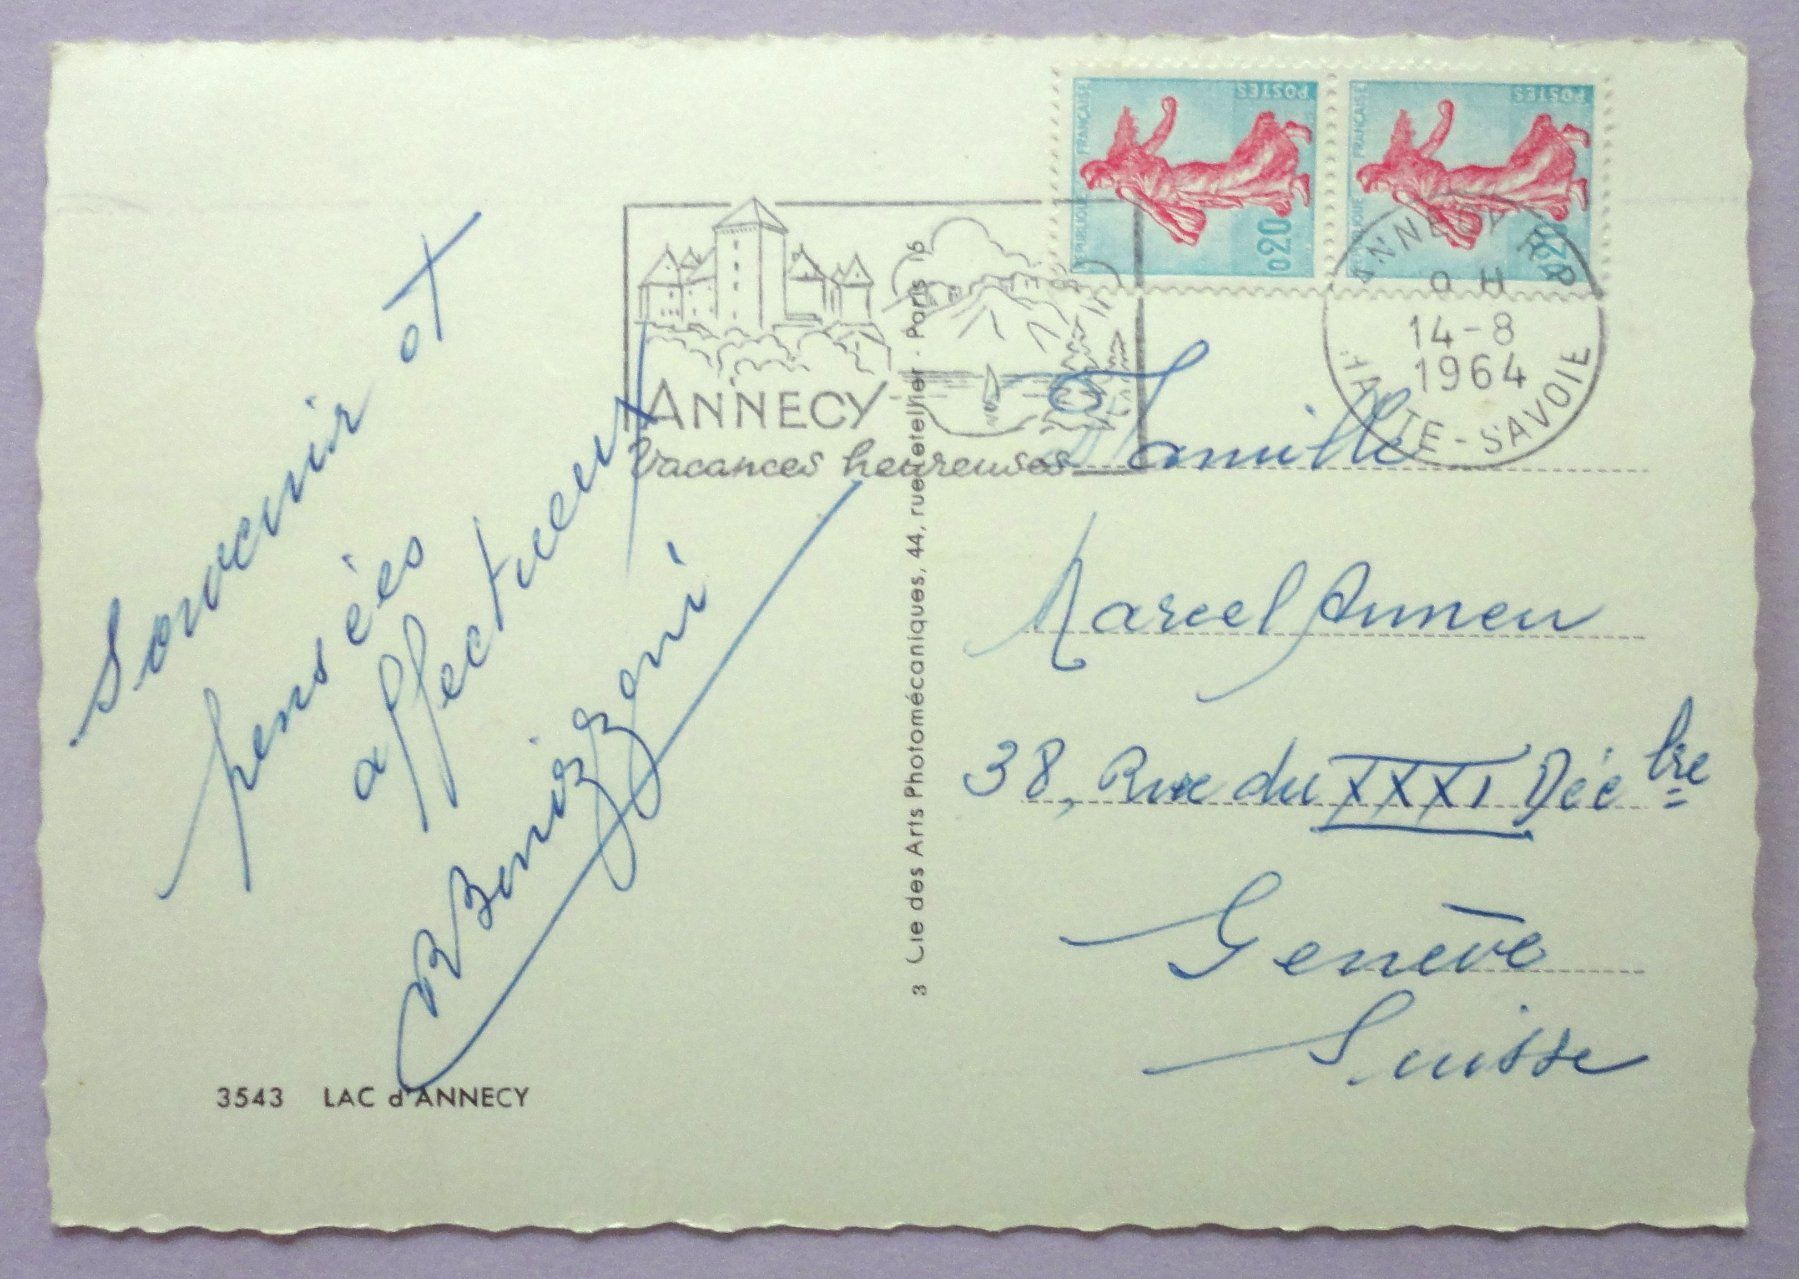 Souvenir et
pensées
affectueux
BBenizzoni
3543 LAC d'ANNECY
3 Cie des Arts Photomécaniques, 44, rue Letellier - Paris 15
ANNECY
Vacances heureuses
RÉPUBLIQUE FRANÇAISE
POSTES
0,20
RÉPUBLIQUE FRANÇAISE
POSTES
0,20
ANNECY R.P.
14-8
1964
HAUTE-SAVOIE
Famille
Marcel Annen
38, Rue du XXXI Décbre
Genève
Suisse